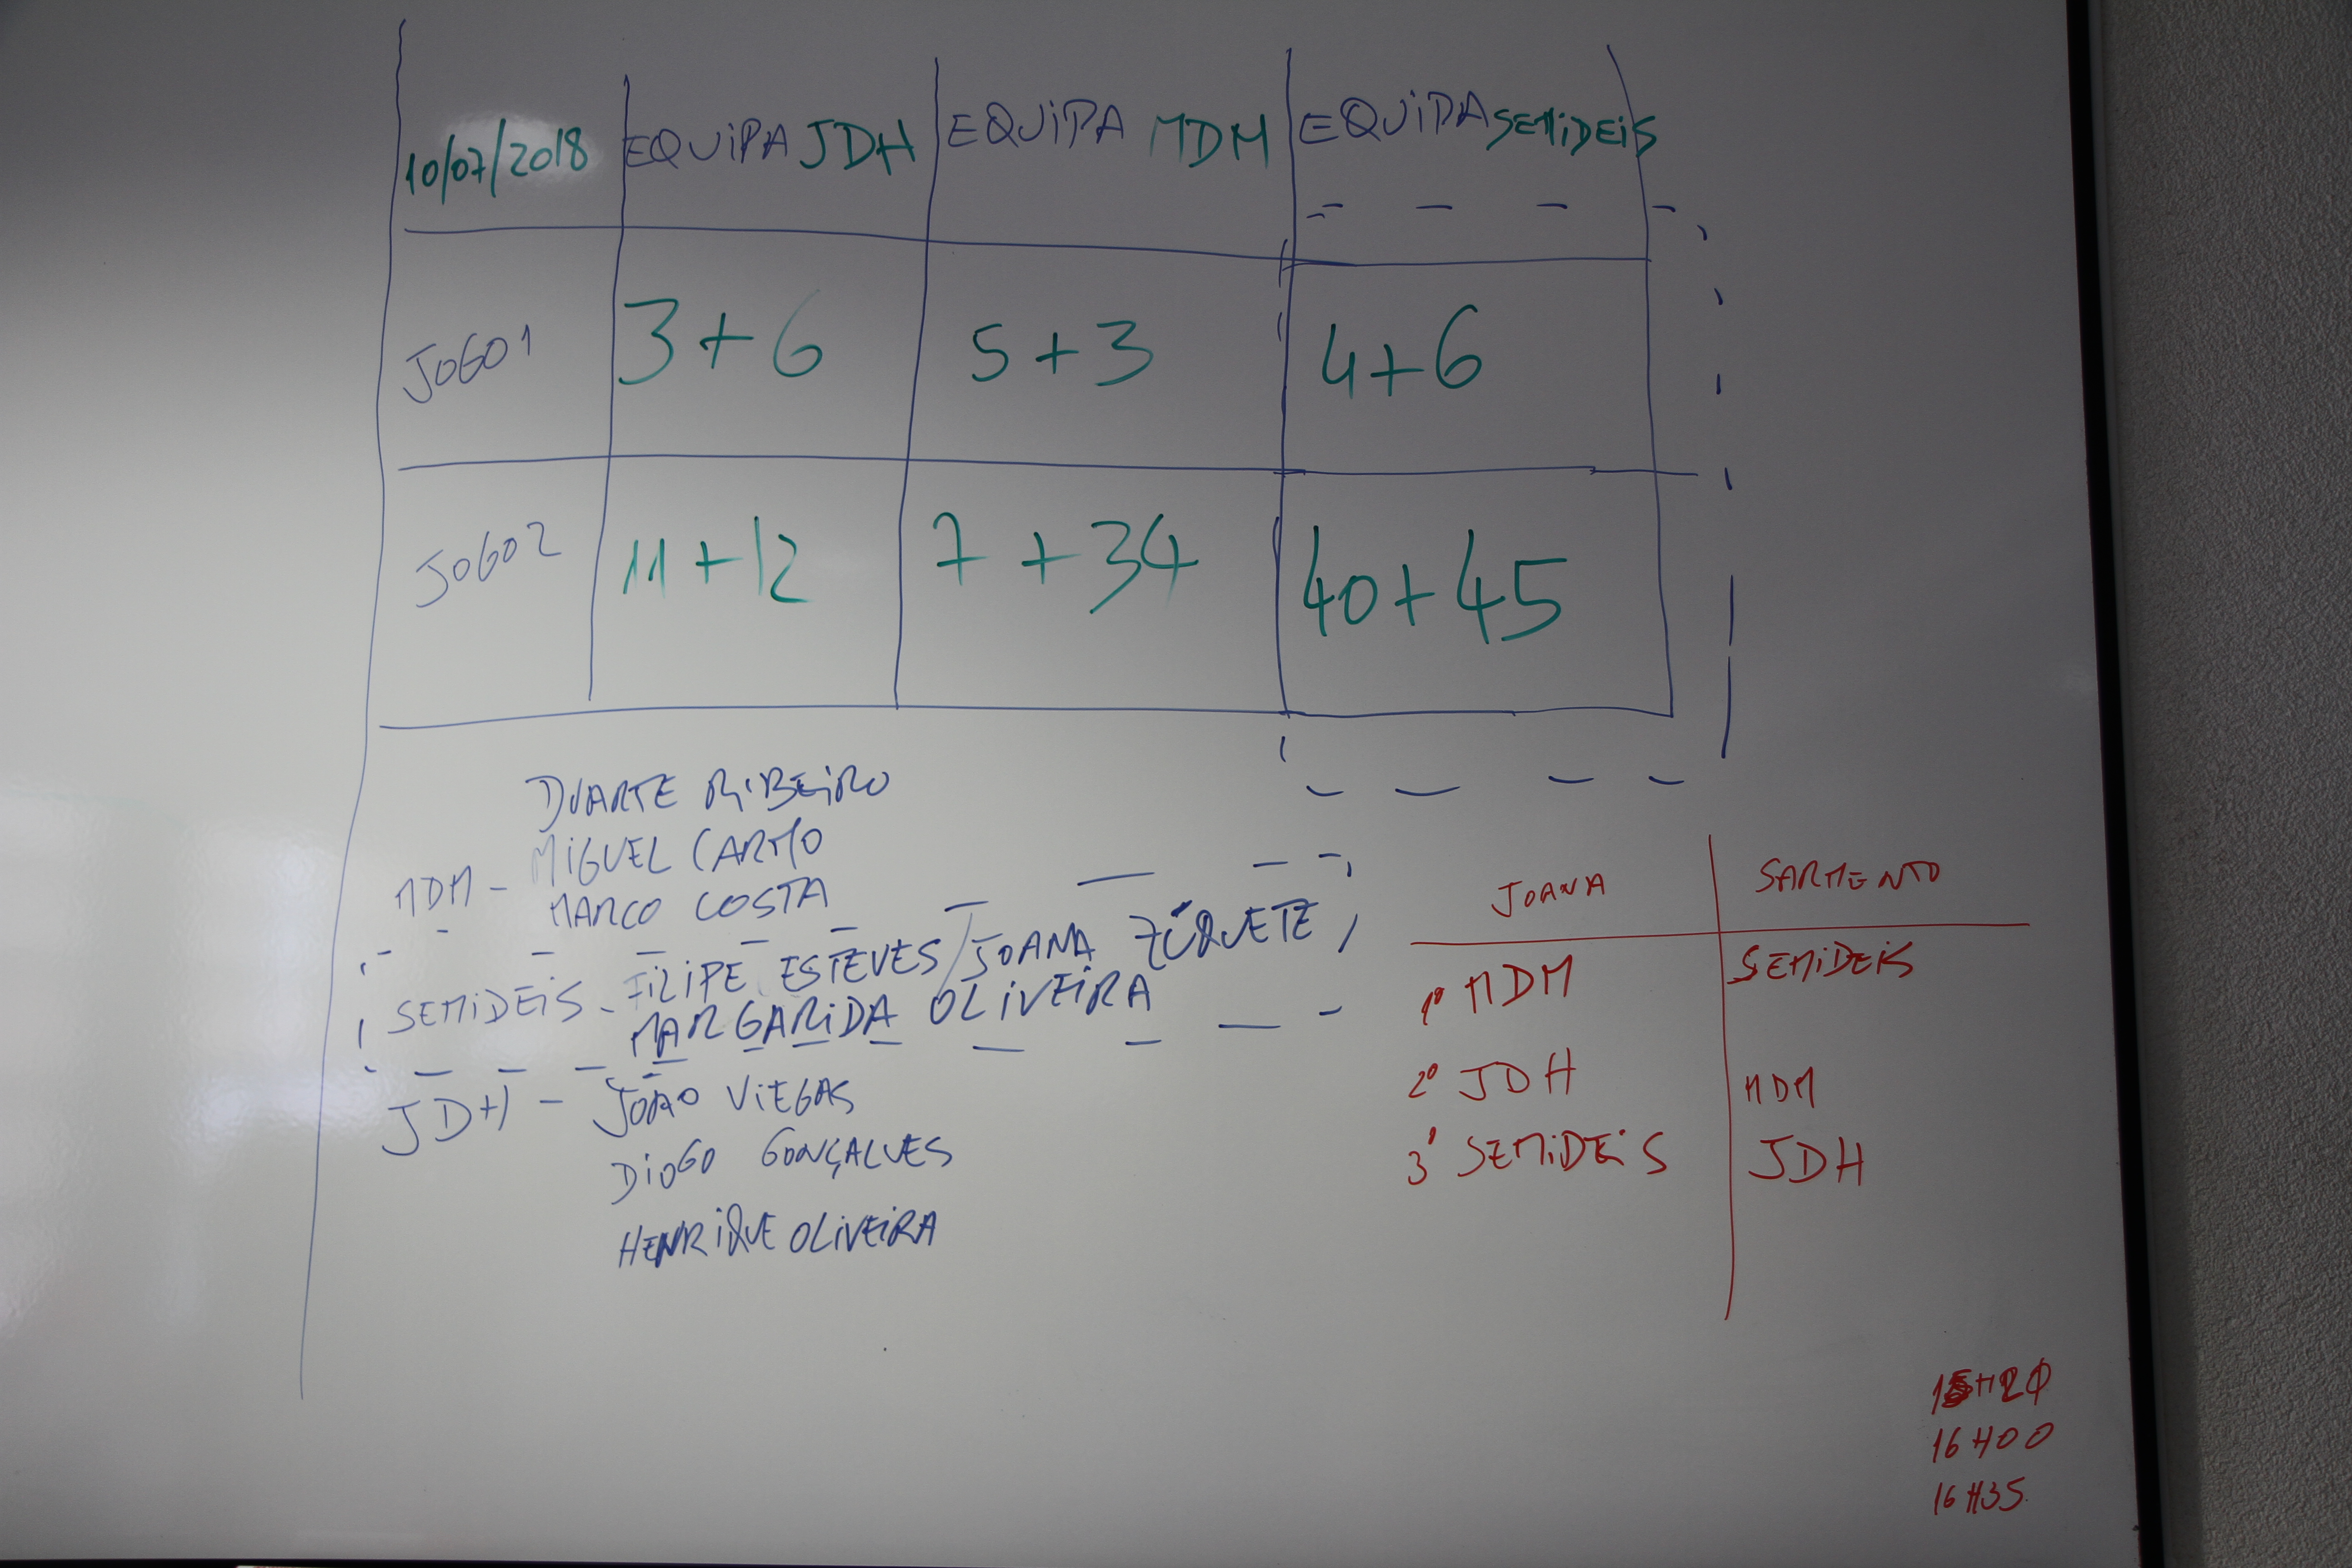 10/07/2018 EQUIPA JDH EQUIPA MDM EQUIPA SEMIDEIS
JOGO 1 3+6 5+3 4+6
JOGO 2 11+12 7+34 40+45
DUARTE RIBEIRO
MIGUEL CARMO
MDM -
MARCO COSTA
SEMIDEIS - FILIPE ESTEVES / JOANA ZÚQUETE,
MARGARIDA OLIVEIRA
JDH - JOÃO VIEGAS
DIOGO GONÇALVES
HENRIQUE OLIVEIRA
JOANA SARMENTO
1º MDM SEMIDEIS
2º JDH MDM
3º SEMIDEIS JDH
15H20
16H00
16H35